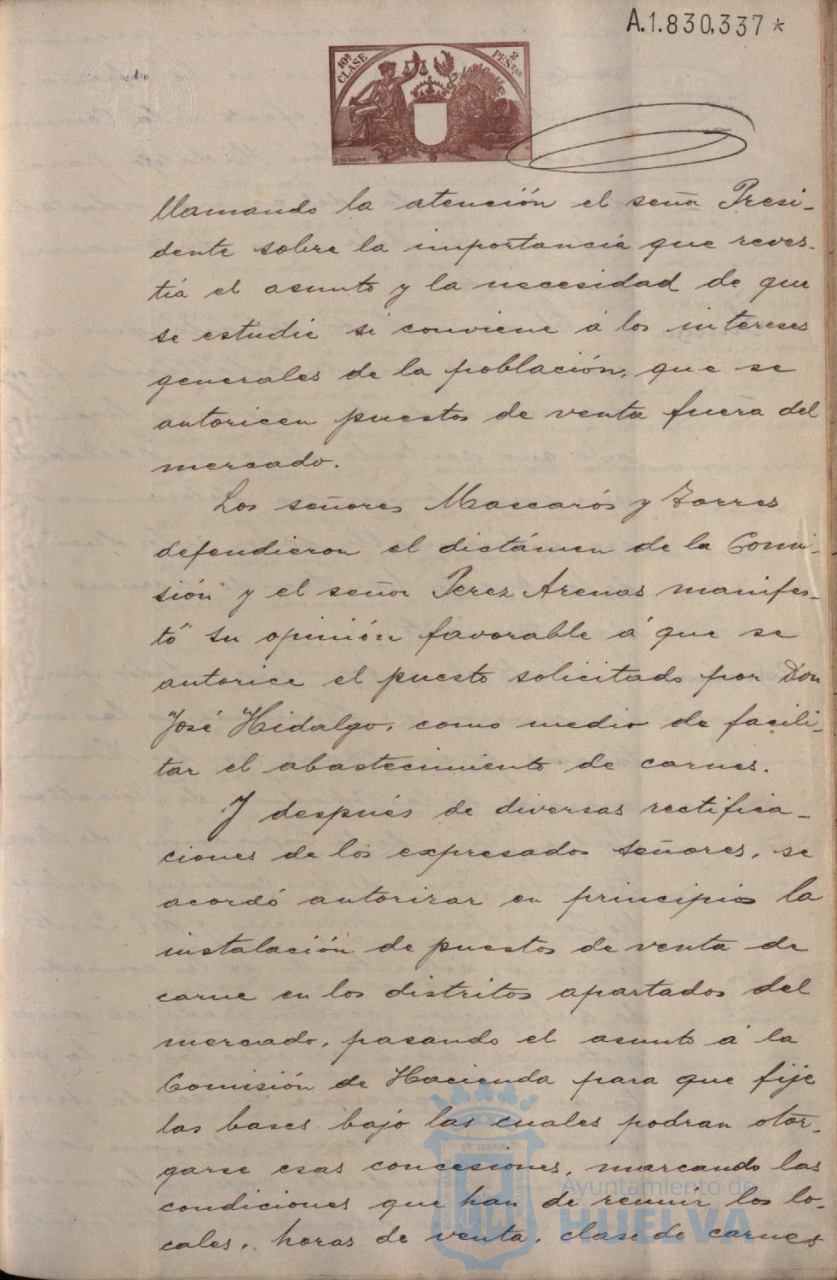 A.1.830,337*
10ª CLASE
2 PESTAS
llamando la atención el señor Presi-
dente sobre la importancia que reves-
tía el asunto y la necesidad de que
se estudie si conviene á los intereses
generales de la población, que se
autoricen puestos de venta fuera del
mercado.
Los señores Mascarós y Torres
defendieron el dictámen de la Comi-
sión y el señor Perez Arenas manifes-
tó su opinión favorable á que se
autorice el puesto solicitado por Don
José Hidalgo, como medio de facili-
tar el abastecimiento de carnes.
Y después de diversas rectifica-
ciones de los expresados señores, se
acordó autorizar en principio la
instalación de puestos de venta de
carne en los distritos apartados del
mercado, pasando el asunto á la
Comisión de Hacienda para que fije
las bases bajo las cuales podran otor-
garse esas concesiones, marcando las
condiciones que han de reunir los lo-
cales, horas de venta, clase de carnes
Ayuntamiento de
HUELVA